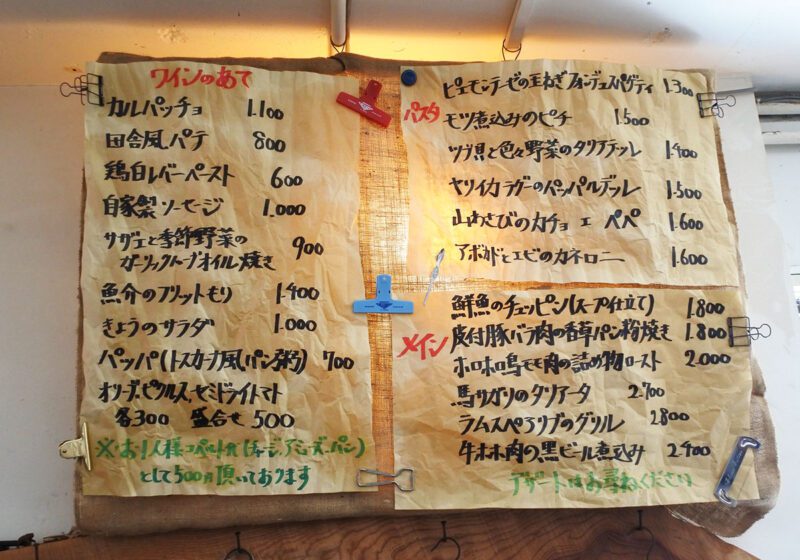 ワインのあて
カルパッチョ 1.100
田舎風パテ 800
鶏白レバーペースト 600
自家製ソーセージ 1.000
サザエと季節野菜の
ガーリックハーブオイル焼き 900
魚介のフリットもり 1.400
きょうのサラダ 1.000
パッパ(トスカーナ風パン粥) 700
オリーブ、ピクルス、セミドライトマト
各300 盛合せ 500
※お1人様コペルト代(チャージ、アミューズ、パン)
として500円頂いております
パスタ
ピエモンテーゼの玉ねぎフォンデュスパゲティ 1.300
モツ煮込みのピチ 1.500
ツブ貝と色々野菜のタリアテッレ 1.400
ヤリイカラグーのパッパルデッレ 1.500
山わさびのカチョ エ ペペ 1.600
アボカドとエビのカネロニー 1.600
メイン
鮮魚のチュッピン(スープ仕立て) 1.800
皮付豚バラ肉の香草パン粉焼き 1.800
ホロホロ鳥モモ肉の詰め物ロースト 2.000
馬サガリのタリアータ 2.700
ラムスペアリブのグリル 2.800
牛ホホ肉の黒ビール煮込み 2.400
デザートはお尋ねください